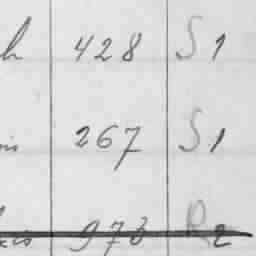 h 428 S 1
is 267 S 1
973 R 2